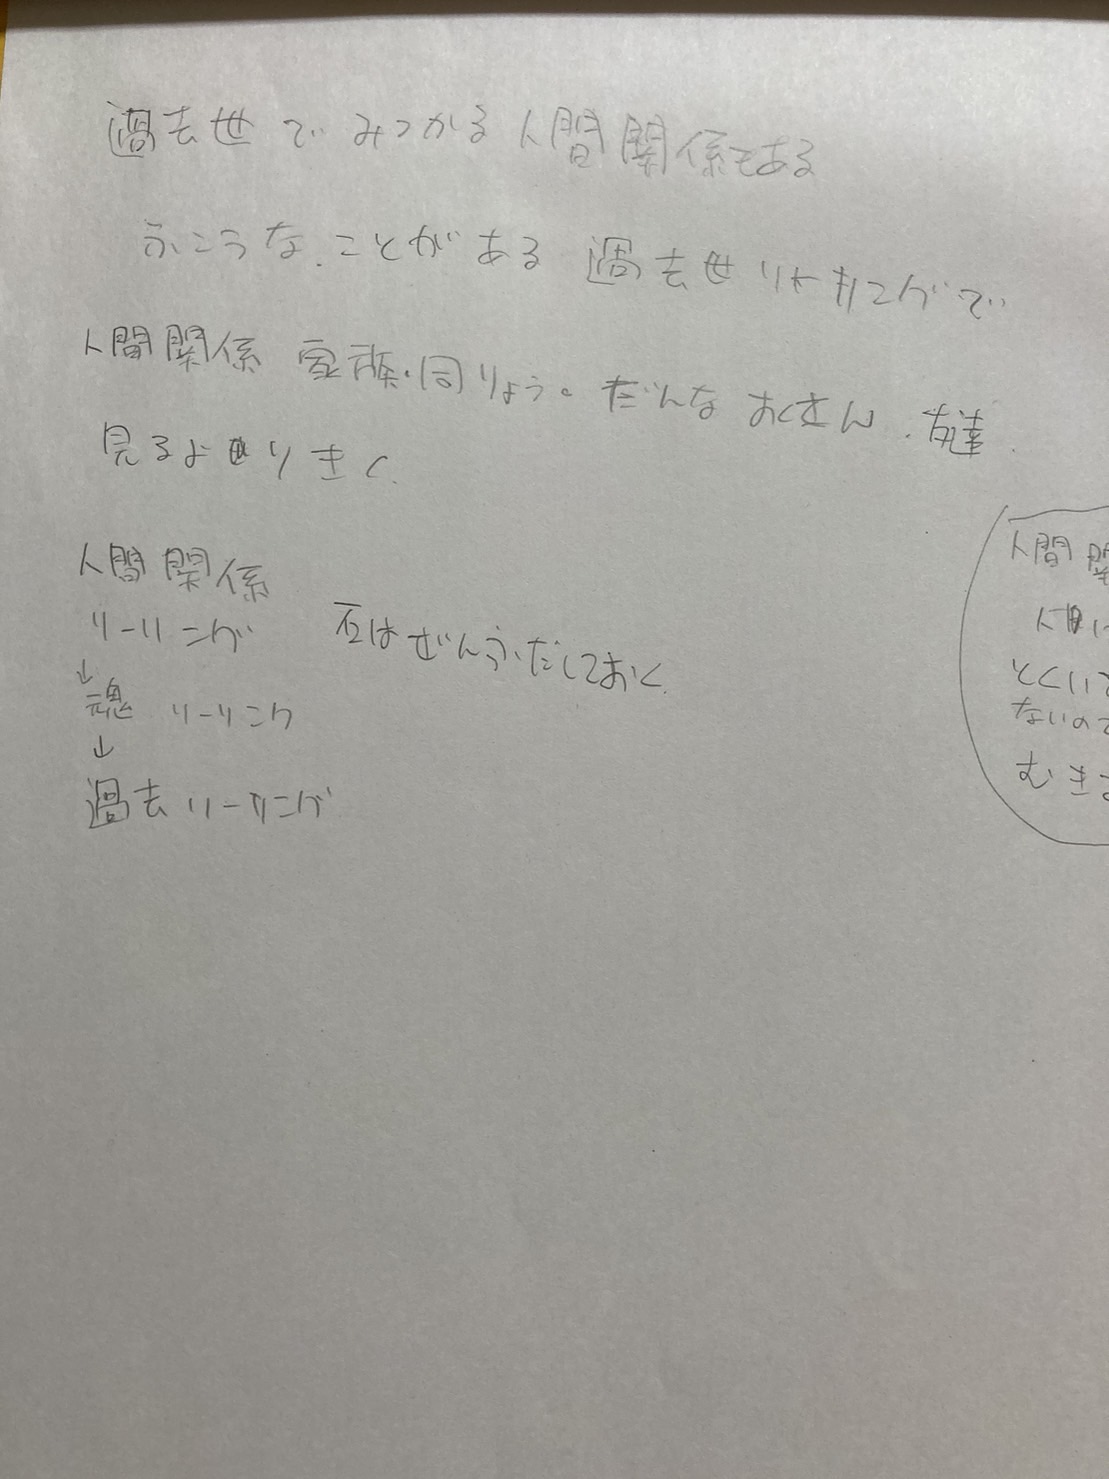 過去世でみつかる人間関係もある
ふこうなことがある 過去世リーリングで
人間関係 家族・同りょう。だんな おくさん、友達.
見るよりきく.
人間関係
リーリング
石はぜんぶだしておく.
↓
魂 リーリング
↓
過去リーリング
人間関
とくいで
ないので
むきま